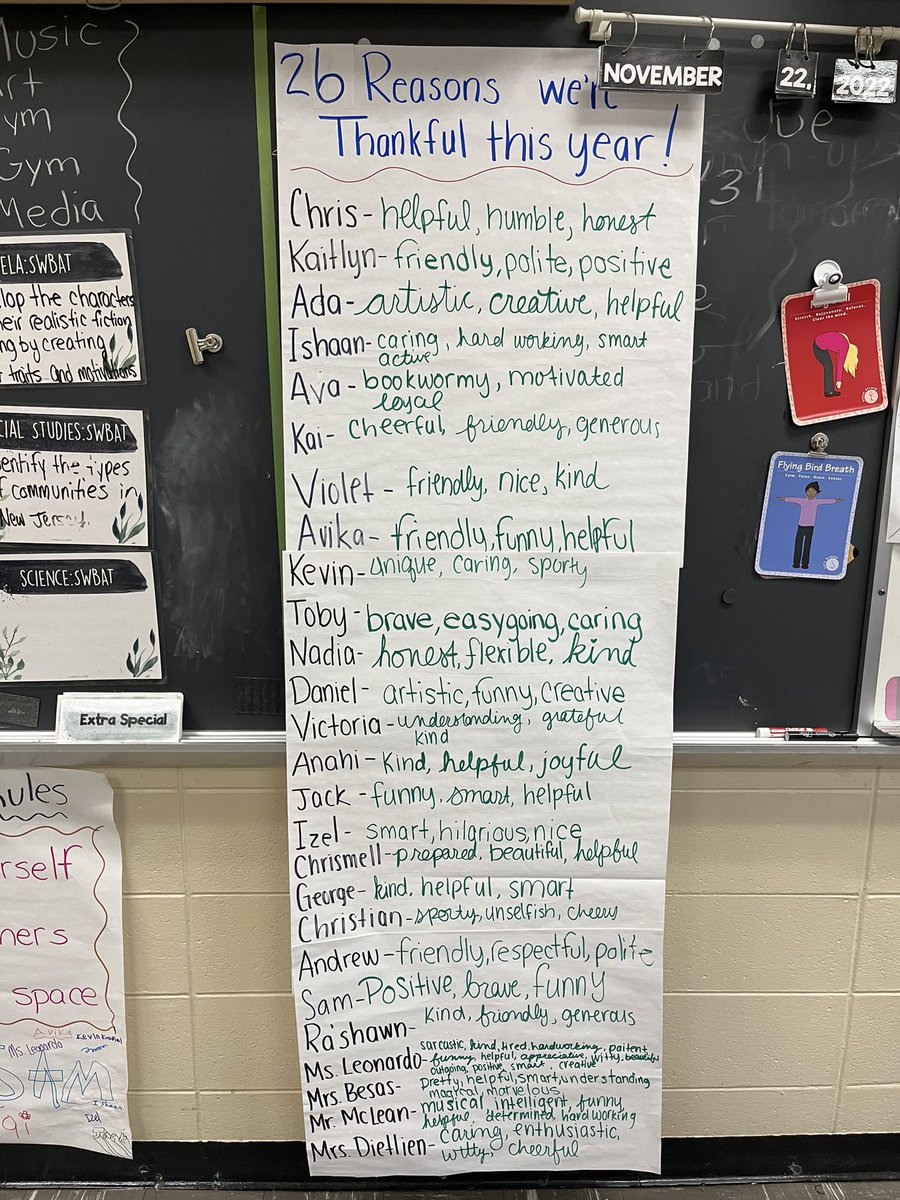 Music
Art
Gym
Gym
Media
ELA:SWBAT
the characters
their realistic fiction
by creating
traits and motivations
SOCIAL STUDIES:SWBAT
identify the types
of communities in
New Jersey.
SCIENCE:SWBAT
Extra Special
space
Avika
Ms Leonardo
SAM
Ishaan
Izel
NOVEMBER 22, 2022
26 Reasons we're
Thankful this year!
Chris- helpful, humble, honest
Kaitlyn- friendly, polite, positive
Ada- artistic, creative, helpful
Ishaan- caring, hard working, smart
active
Ava- bookwormy, motivated
loyal
Kai- cheerful, friendly, generous
Violet- friendly, nice, kind
Avika- friendly, funny, helpful
Kevin- unique, caring, sporty
Toby- brave, easygoing, caring
Nadia- honest, flexible, kind
Daniel- artistic, funny, creative
Victoria- understanding, grateful
kind
Anahi- Kind, helpful, joyful
Jack- funny, smart, helpful
Izel- smart, hilarious, nice
Chrismell- prepared, beautiful, helpful
George- kind, helpful, smart
Christian- sporty, unselfish, cheery
Andrew- friendly, respectful, polite
Sam- Positive, brave, funny
Ra'shawn- Kind, friendly, generous
sarcastic, kind, tired, hardworking, patient
Ms. Leonardo- funny, helpful, appreciative, witty, beautiful
outgoing, positive, smart, creative
Mrs. Besas- Pretty, helpful, smart, understanding
magical marvelous
Mr. McLean- musical intelligent, funny,
helpful, determined, hard working
Mrs. Dietlien- caring, enthusiastic,
witty, cheerful
due
31
Stretch. Rejuvenate. Refocus.
Clear the mind.
Flying Bird Breath
Calm. Focus. Brave. Center.